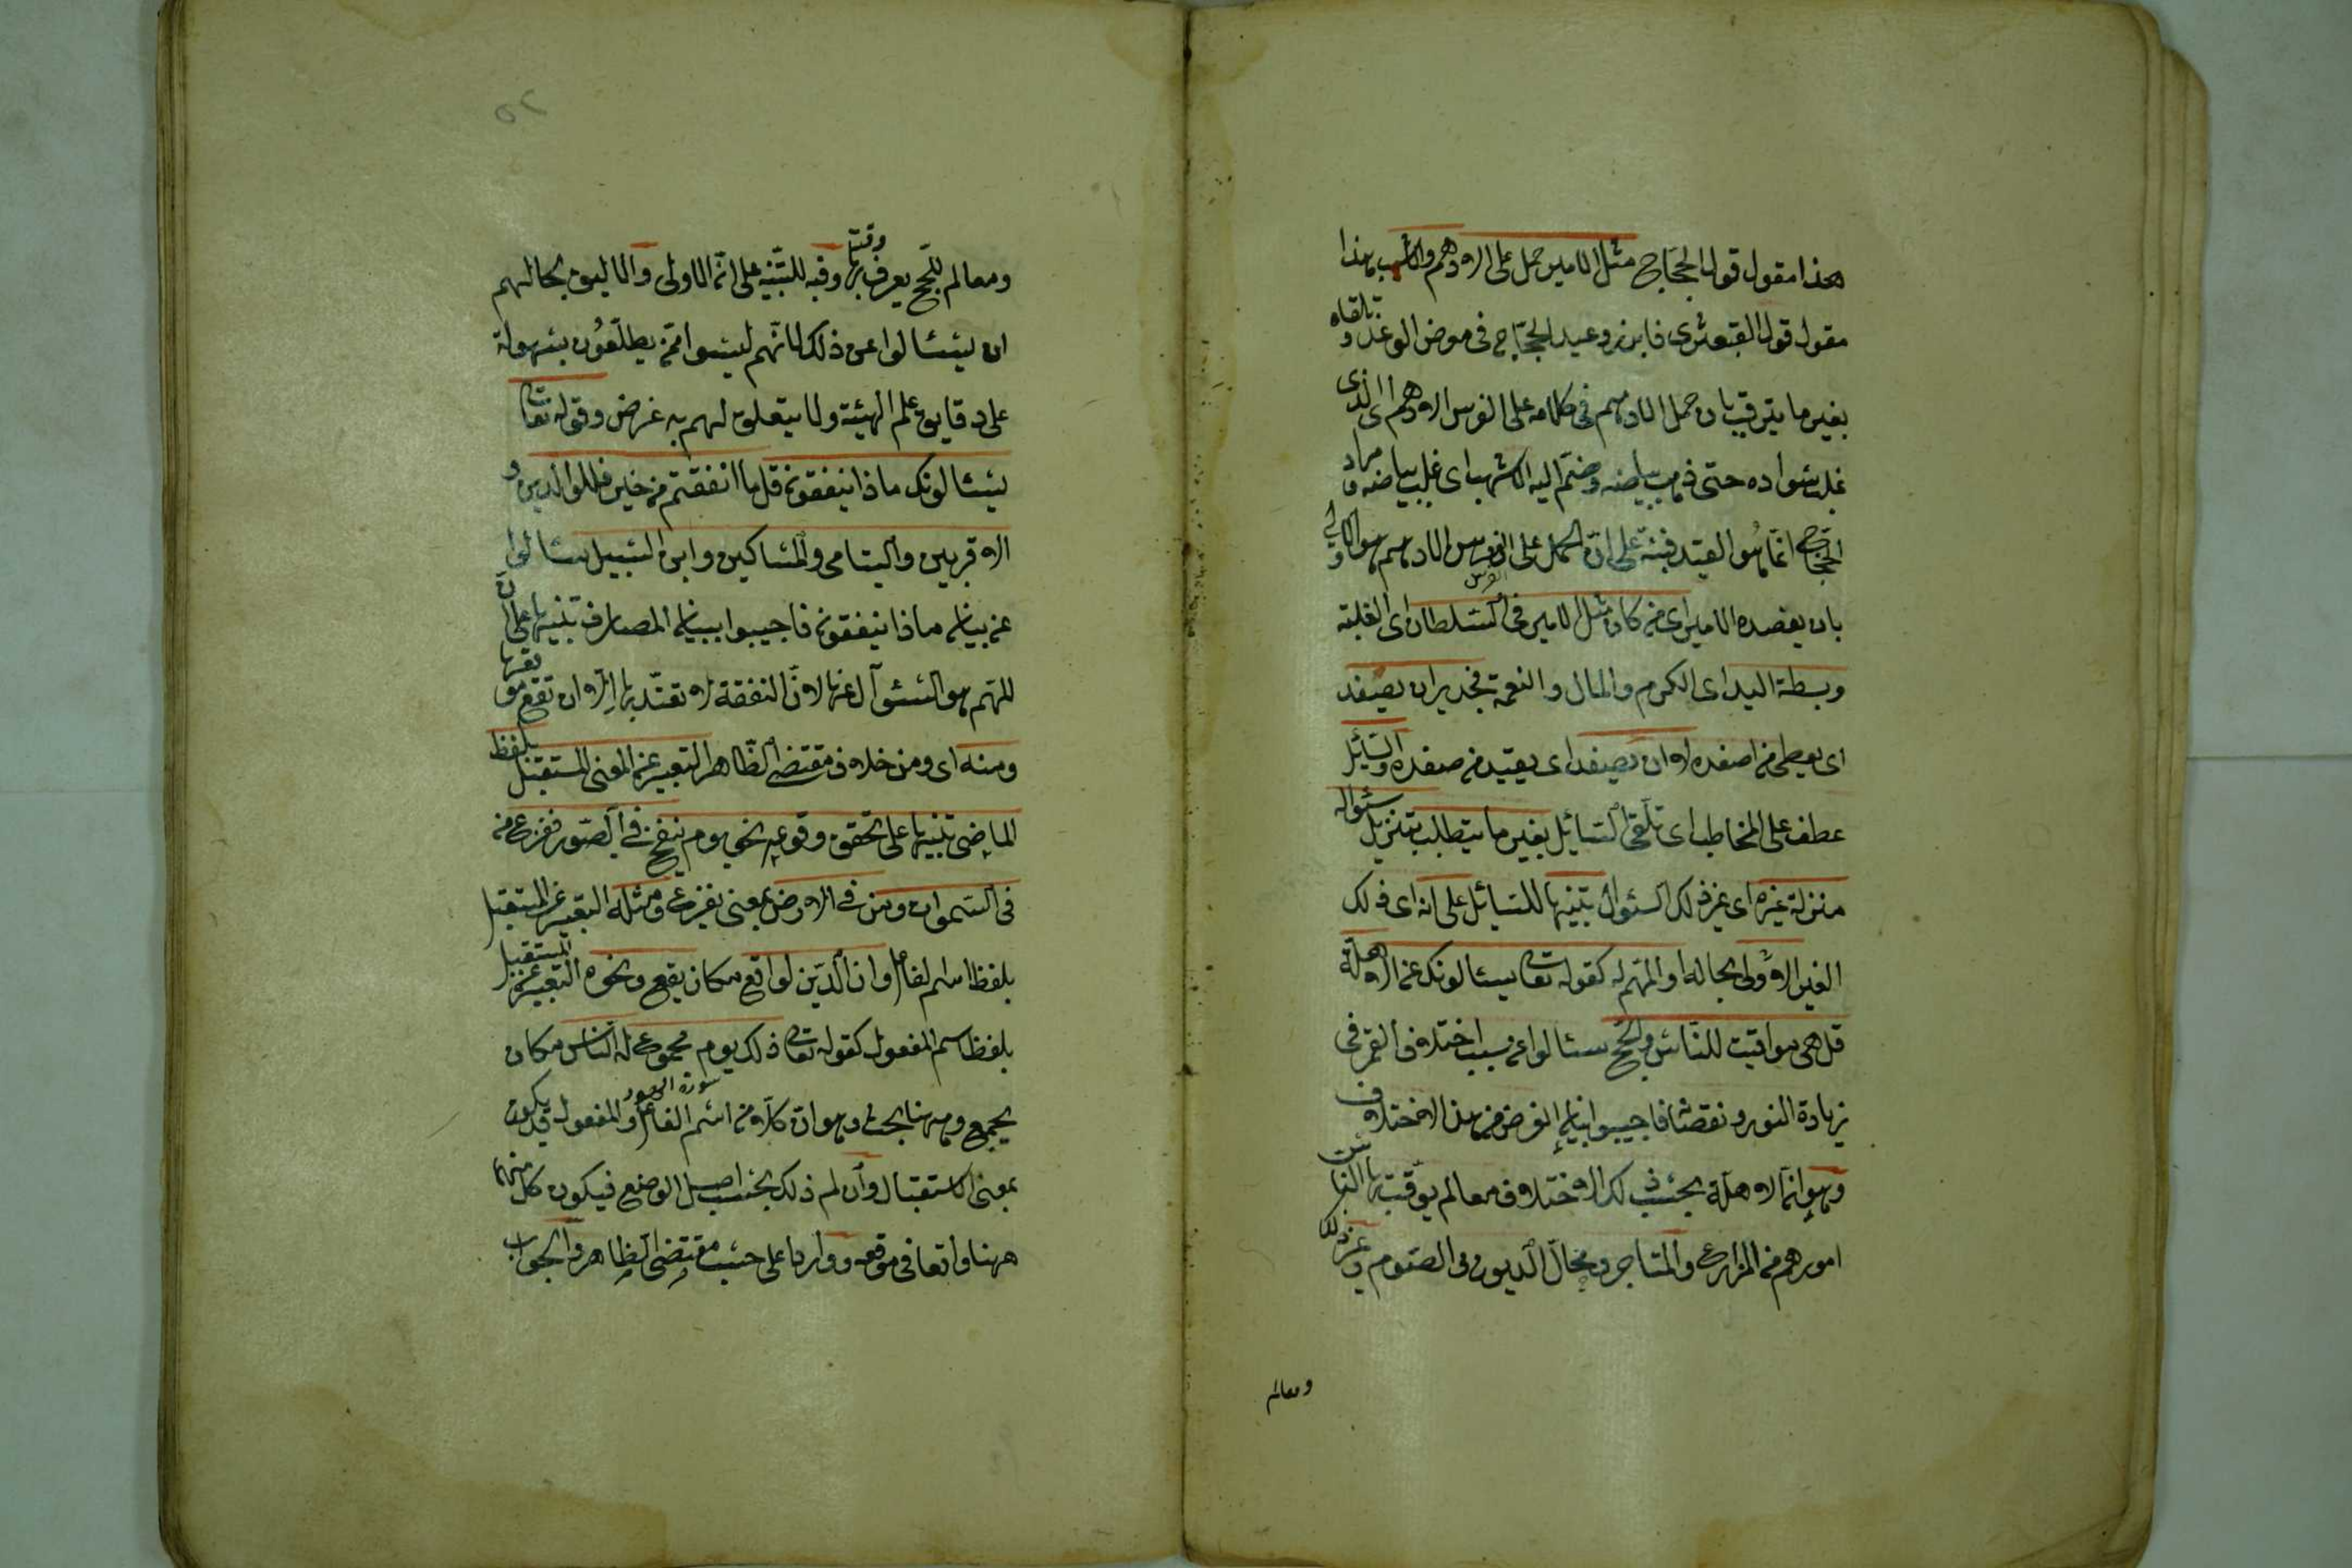 هذا مقول قول الحجاج مثل الامير حمل على الادهم والاشهب هذا
مقول قول القبعثرى فابرز وعيد الحجاج فى موضع الوعد وتلقاه
بغير ما يترقب بان حمل الادهم فى كلامه على الفرس الادهم اى الذى
غلب سواده حتى ذهب بياضه وضم اليه الاشهب اى غلب بياضه ومراد
الحجاج انما هو القيد فنبه على ان الحمل على الفرس الادهم هو الاولى
بان يقصده الامير اى من كان مثل الامير فى السلطان اى الغلبة
وبسطة اليد اى الكرم والمال والنعمة فجدير ان يصفد
اى يعطى من اصفده لا ان يصفد اى يقيد من صفده والسائل
عطف على المخاطب اى تلقى السائل بغير ما يتطلب بتنزيل سؤاله
منزلة غيره اى غير ذلك السئوال تنبيها للسائل على انه اى ذلك
الغير الاولى بحاله او المهم له كقوله تعا يسئالونك عن الاهلة
قل هى مواقيت للناس والحج سئالوا عن سبب اختلاف القمر فى
زيادة النور ونقصا فاجيبوا ببيان الغرض من هذا الاختلاف
وهو ان الاهلة بحسب ذلك الاختلاف معالم يوقت بها الناس
امورهم من المزارع والمتاجر ومحال الديون والصوم وغير ذلك
ومعالم
ومعالم للحج يعرف بها وقته وفيه للتنبيه على ان الاولى والاليق بحالهم
ان يسئالوا عن ذلك لانهم ليسوا ممن يطلعون بسهولة
على دقايق علم الهيئة ولا يتعلق لهم به غرض وقوله تعا
يسئالونك ماذا ينفقون قل ما انفقتم من خير فللوالدين و
الاقربين واليتامى والمساكين وابن السبيل سئالوا
عن بيان ماذا ينفقون فاجيبوا ببيان المصارف تنبيها على ان
المهم هو السئوآل عنها لان النفقة لا تعتد بها الا ان تقع موقعها
ومنه اى ومن خلاف مقتضى الظاهر التعبير عن المعنى المستقبل بلفظ
الماضى تنبيها على تحقق وقوعه نحو يوم ينفخ فى الصور ففزع من
فى السموات ومن فى الارض بمعنى يفزع ومثله التعبير عن المستقبل
بلفظ اسم لفاعل وان الدين لواقع مكان يقع ونحوه التعبير عن المستقبل
بلفظ اسم المفعول كقوله تعا ذلك يوم مجموع له الناس مكان
يجمع وههنا بحث وهو ان كلا من اسم الفاعل والمفعول قد يكون
بمعنى الاستقبال وان لم ذلك بحسب اصل الوضع فيكون كل منهما
ههنا واقعا فى موقعه وواردا على حسب مقتضى الظاهر والجواب